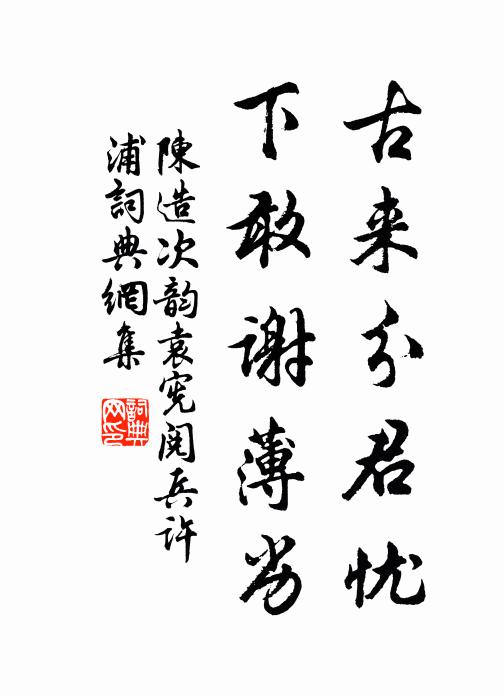 古来分君忧
下敢谢薄劣
陳造次韵袁宪阅兵许
浦詞典網集
詞典
网印